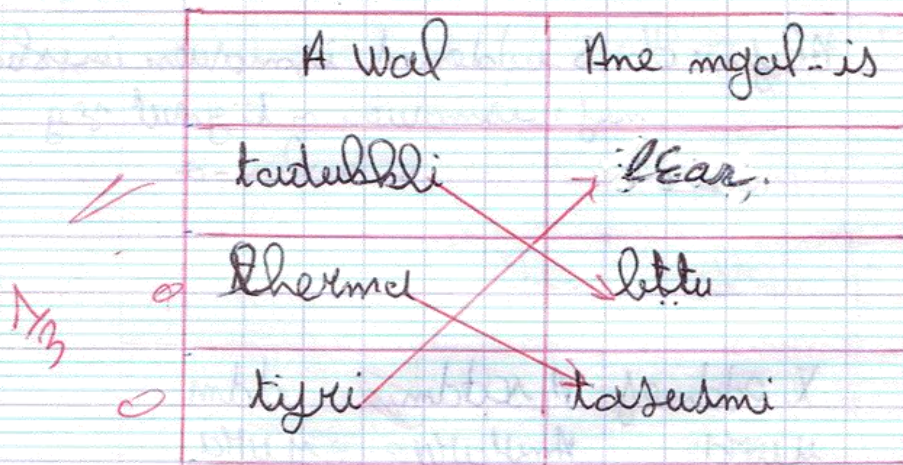 A wal Ane mgal-is
tadukkli lEar.
Lherma bṭṭu
tiỵri tasusmi
1/3